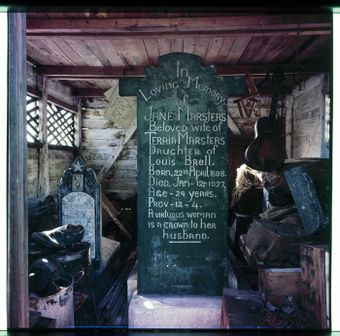 In Memory
Loving of
JANE MARSTERS
Beloved wife of
TERAIA MARSTERS
Daughter of
Louis Brell.
Born, 22nd April, 1898.
Died, Jan - 12th 1927,
Age - 29 years.
Prov - 12 - 4.
A virtuous woman
is a crown to her
husband.